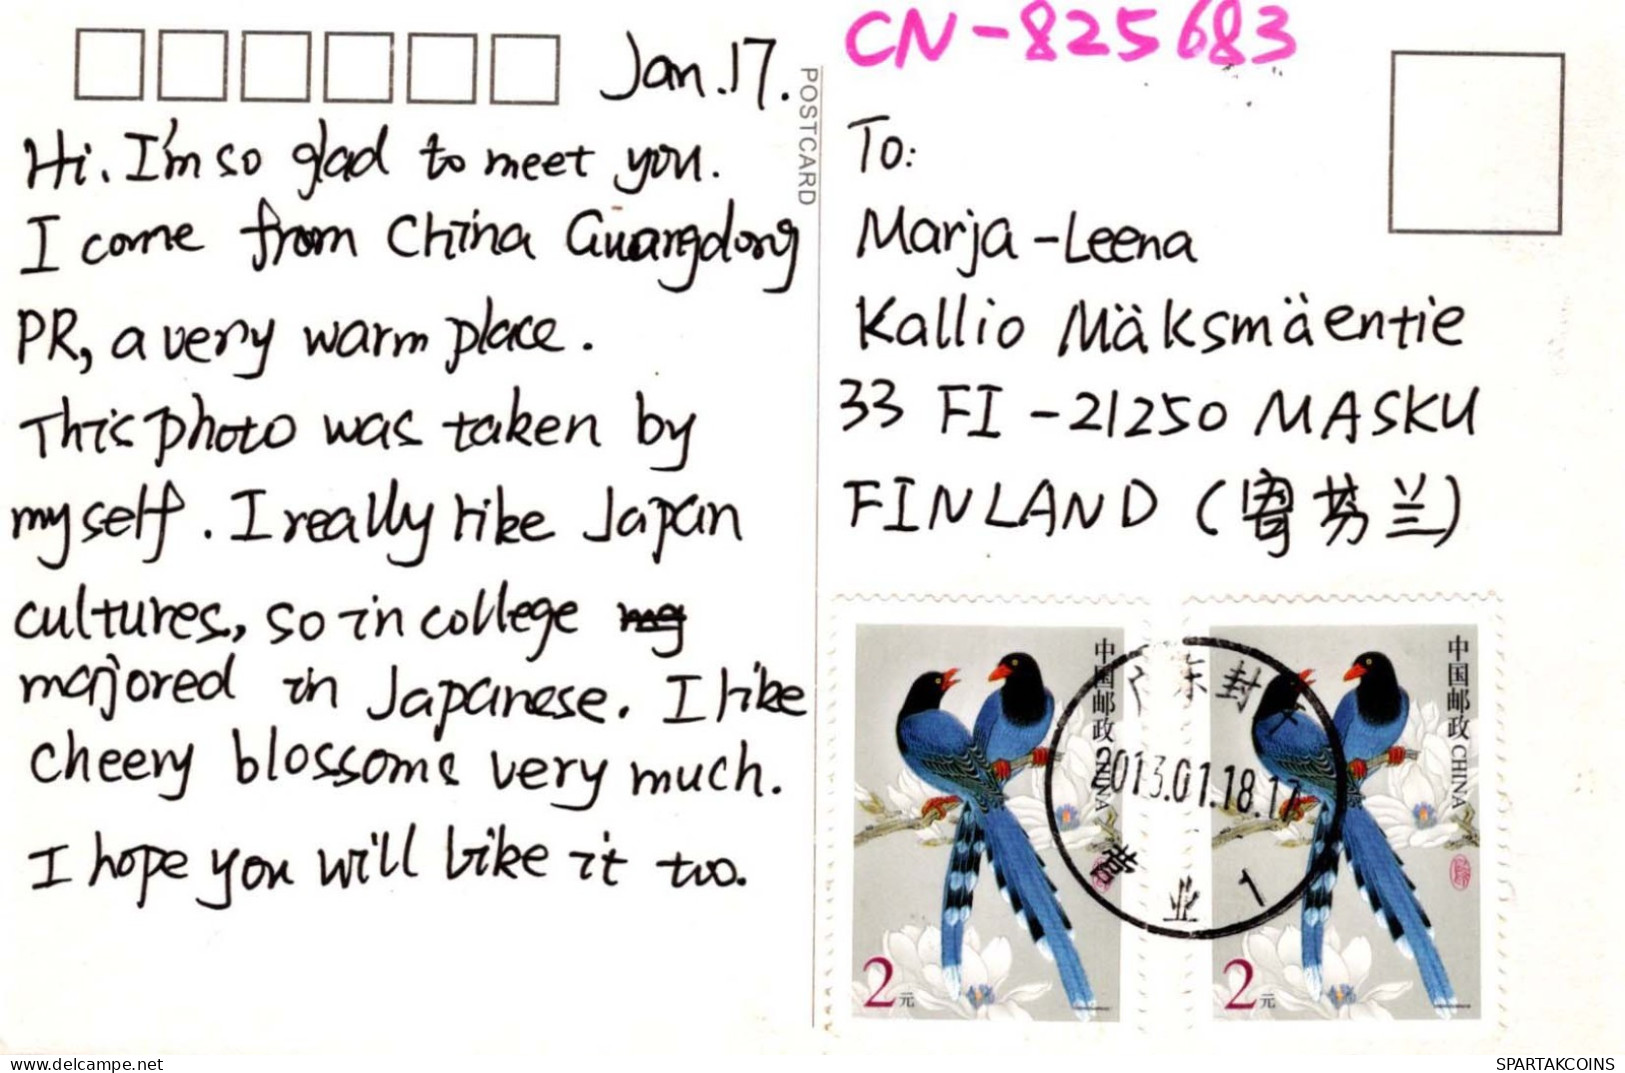 Jan.17.
Hi. I'm so glad to meet you.
I come from China Guangdong
PR, a very warm place.
This photo was taken by
myself. I really like Japan
cultures, so in college
majored in Japanese. I like
cheery blossoms very much.
I hope you will like it too.
POSTCARD
CN-825683
To:
Marja-Leena
Kallio Mäksmäentie
33 FI-21250 MASKU
FINLAND (寄芬兰)
中国邮政
2元
中国邮政 CHINA
2元
东封
2013.01.18.17
营业 1
SPARTAKCOINS
delcampe.net